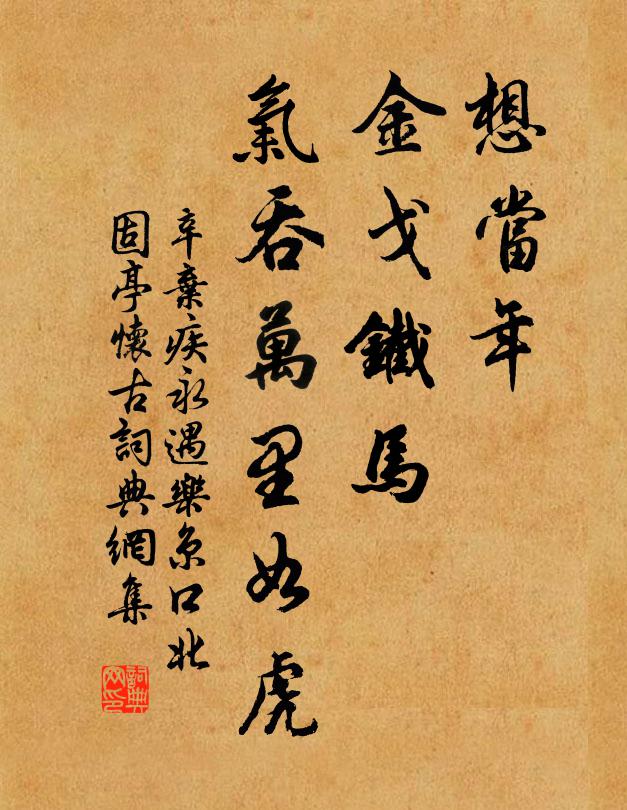 想當年
金戈鐵馬
氣吞萬里如虎
辛棄疾永遇樂京口北
固亭懷古詞典網集
詞典网印